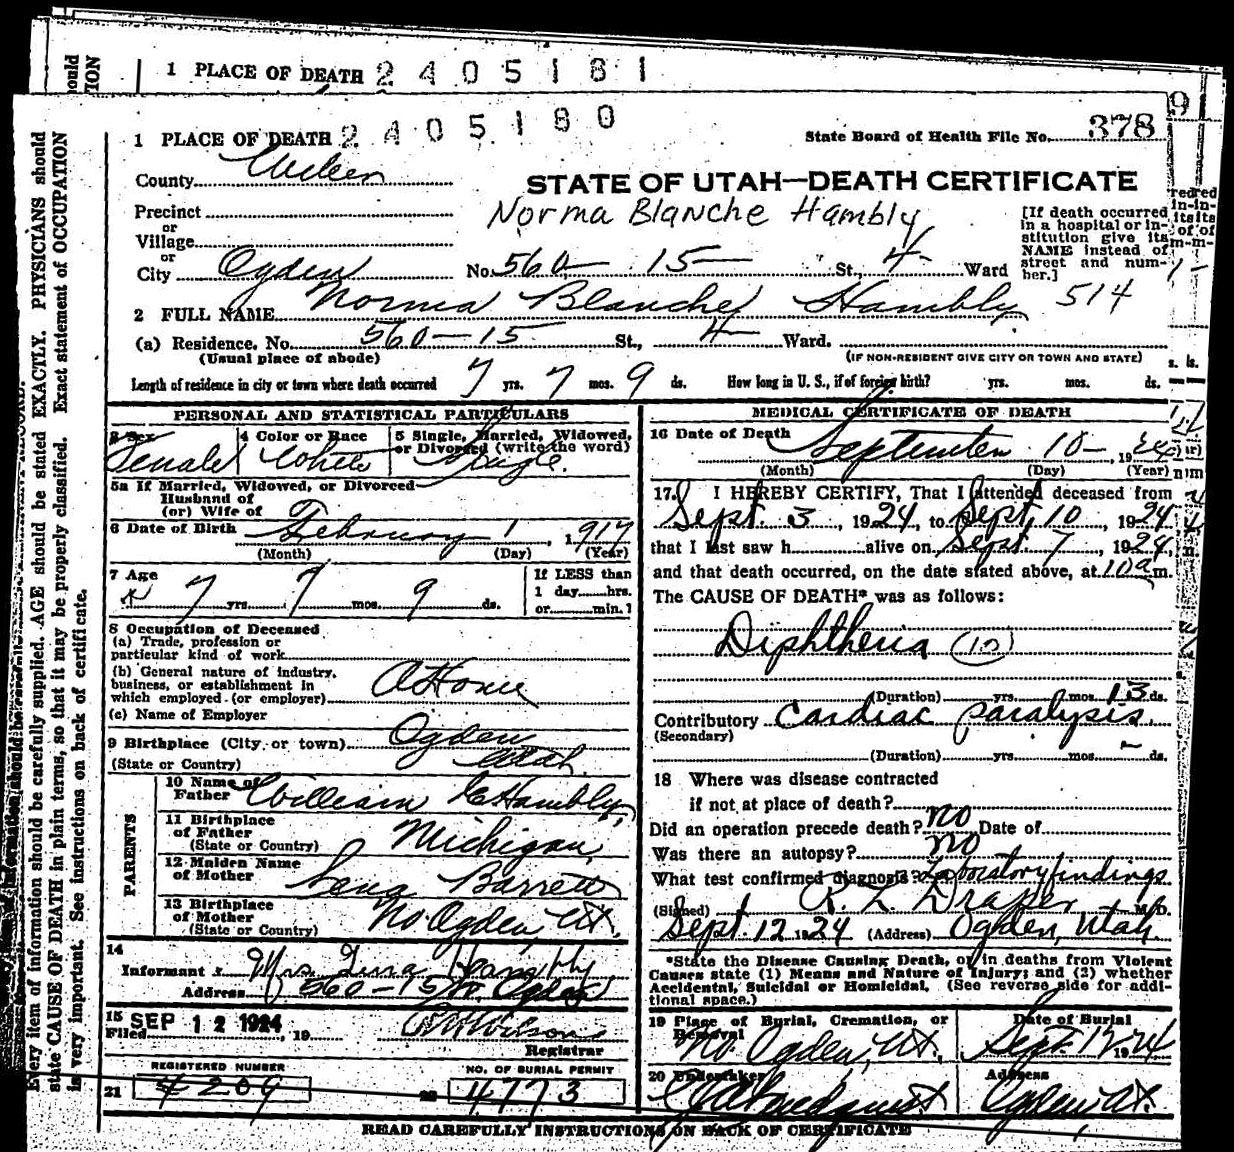 1 PLACE OF DEATH 2405181
1 PLACE OF DEATH 2405180
State Board of Health File No. 378
County Weber
STATE OF UTAH—DEATH CERTIFICATE
Precinct
Norma Blanche Hambly
or
Village
or
City Ogden No. 560 15 St., 4 Ward
[If death occurred in a hospital or institution give its NAME instead of street and number.]
514
2 FULL NAME Norma Blanche Hambly
(a) Residence. No. 560-15 St., 4 Ward.
(Usual place of abode) (IF NON-RESIDENT GIVE CITY OR TOWN AND STATE)
Length of residence in city or town where death occurred 7 yrs. 7 mos. 9 ds. How long in U. S., if of foreign birth? yrs. mos. ds.
PERSONAL AND STATISTICAL PARTICULARS
3 Sex Female
4 Color or Race White
5 Single, Married, Widowed, or Divorced (write the word) Single.
5a If Married, Widowed, or Divorced
Husband of
(or) Wife of
6 Date of Birth February 1, 1917
(Month) (Day) (Year)
7 Age 7 yrs. 7 mos. 9 ds.
If LESS than
1 day hrs.
or min.
8 Occupation of Deceased
(a) Trade, profession or
particular kind of work
(b) General nature of industry,
business, or establishment in
which employed (or employer) At Home
(c) Name of Employer
9 Birthplace (City or town) Ogden
(State or Country) Utah
PARENTS
10 Name of Father William E Hambly,
11 Birthplace of Father (State or Country) Michigan,
12 Maiden Name of Mother Lena Barrett
13 Birthplace of Mother (State or Country) No. Ogden, Ut.
14
Informant Mrs. Hambly
Address 560-15 St. Ogden
15 Filed SEP 12 1924, 19 Wilson
Registrar
REGISTERED NUMBER
21 209
NO. OF BURIAL PERMIT
4773
MEDICAL CERTIFICATE OF DEATH
16 Date of Death September 10-, 1924
(Month) (Day) (Year)
17. I HEREBY CERTIFY, That I attended deceased from
Sept. 3, 1924, to Sept. 10, 1924
that I last saw h alive on Sept. 7, 1924,
and that death occurred, on the date stated above, at 10 a m.
The CAUSE OF DEATH* was as follows:
Diphtheria (10)
(Duration) yrs. mos. 13 ds.
Contributory Cardiac paralysis.
(Secondary)
(Duration) yrs. mos. - ds.
18 Where was disease contracted
if not at place of death?
Did an operation precede death? No Date of
Was there an autopsy? No
What test confirmed diagnosis? Laboratory findings
(Signed) R. L. Draper M.D.
Sept. 12 1924 (Address) Ogden, Utah.
*State the Disease Causing Death, or in deaths from Violent
Causes state (1) Means and Nature of Injury; and (2) whether
Accidental, Suicidal or Homicidal. (See reverse side for addi-
tional space.)
19 Place of Burial, Cremation, or Removal No. Ogden, Ut.
Date of Burial Sept. 12 1924
20 Undertaker
Address Ogden, Ut.
READ CAREFULLY INSTRUCTIONS ON BACK OF CERTIFICATE
Every item of information should be carefully supplied. AGE should be stated EXACTLY. PHYSICIANS should
state CAUSE OF DEATH in plain terms, so that it may be properly classified. Exact statement of OCCUPATION
is very important. See instructions on back of certificate.